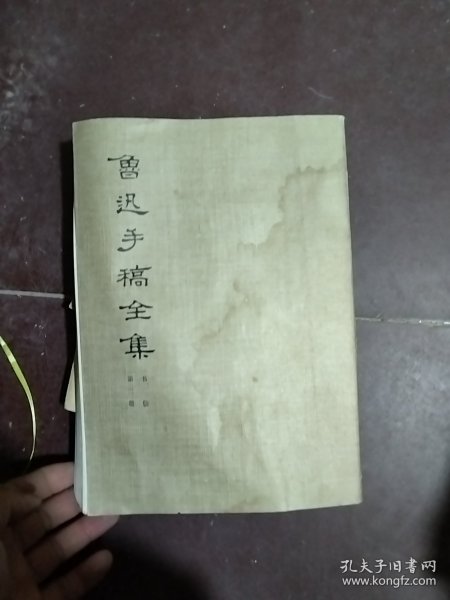 魯迅手稿全集
书信
第一册
孔夫子旧书网
www.kongfz.com